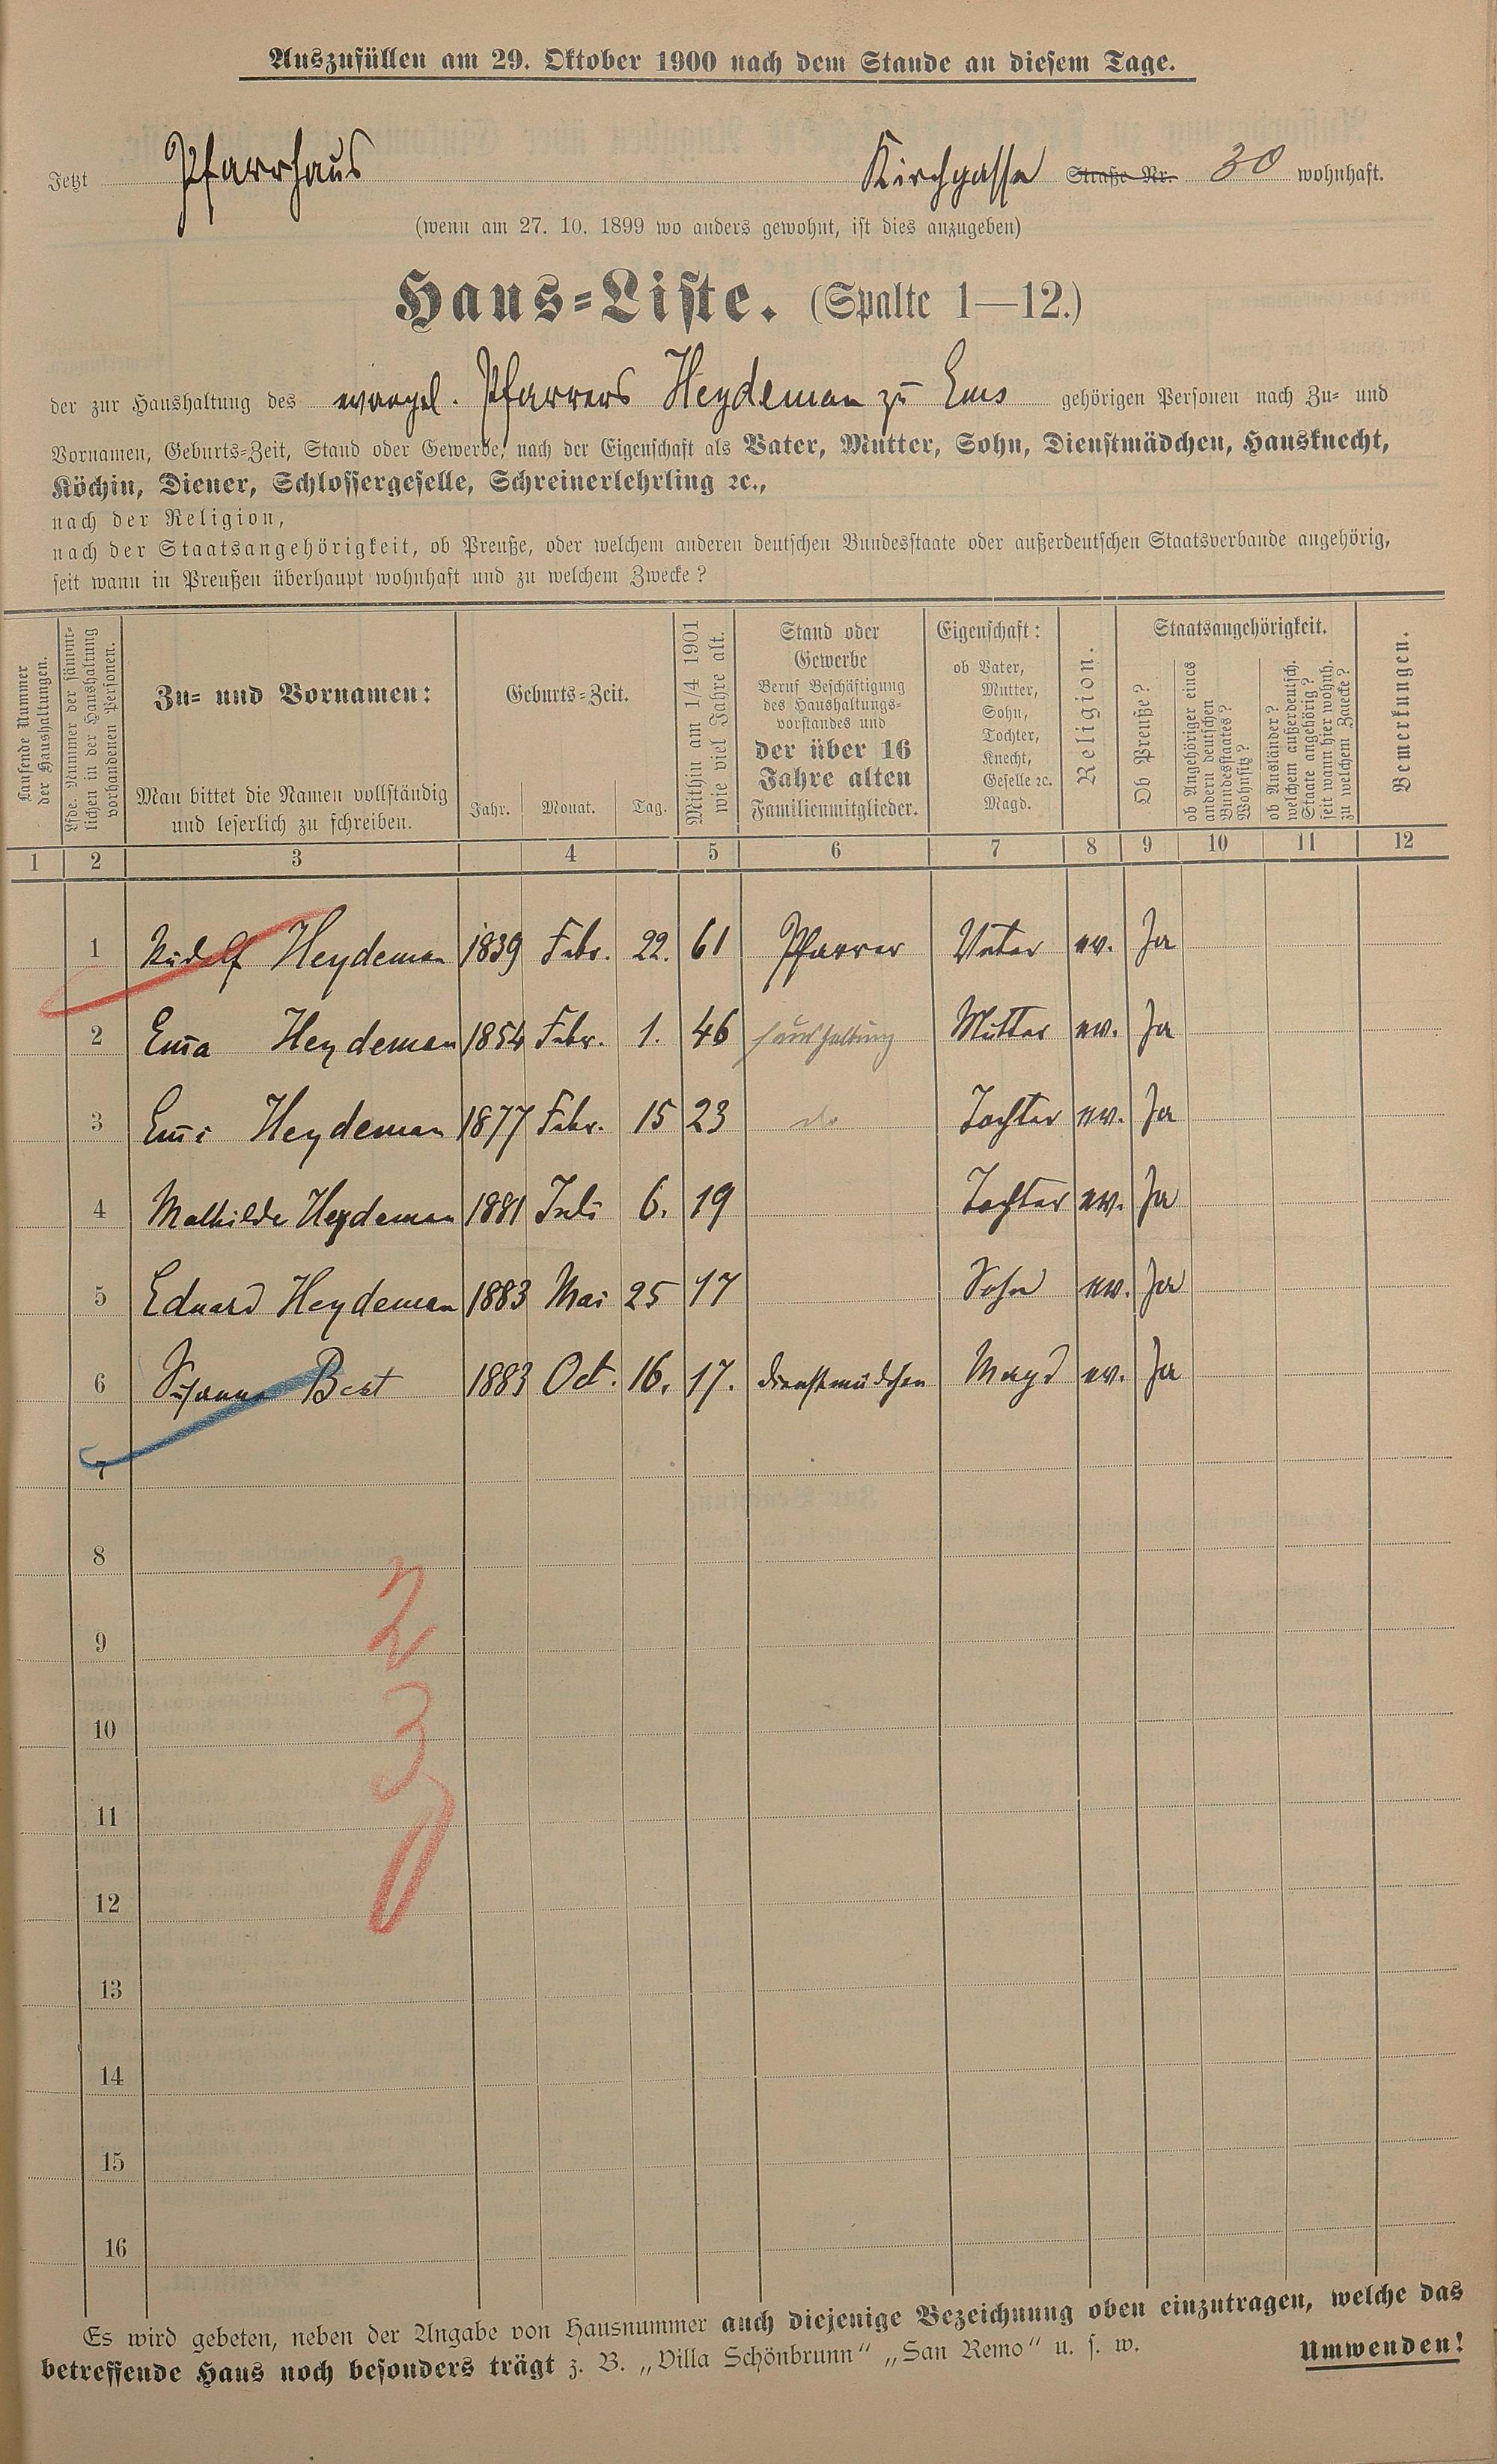 Auszufüllen am 29. Oktober 1900 nach dem Stande an diesem Tage.
Jetzt Pfarrhaus Kirchgasse Straße Nr. 30 wohnhaft.
(wenn am 27. 10. 1899 wo anders gewohnt, ist dies anzugeben)
Haus-Liste. (Spalte 1—12.)
der zur Haushaltung des evangel. Pfarrers Heydeman zu Ems gehörigen Personen nach Zu- und
Vornamen, Geburts-Zeit, Stand oder Gewerbe, nach der Eigenschaft als Vater, Mutter, Sohn, Dienstmädchen, Hausknecht,
Köchin, Diener, Schlossergeselle, Schreinerlehrling ꝛc.,
nach der Religion,
nach der Staatsangehörigkeit, ob Preuße, oder welchem anderen deutschen Bundesstaate oder außerdeutschen Staatsverbande angehörig,
seit wann in Preußen überhaupt wohnhaft und zu welchem Zwecke?
Laufende Nummer
der Haushaltungen.
Lfde. Nummer der sämmt-
lichen in der Haushaltung
vorhandenen Personen.
Zu- und Vornamen:
Man bittet die Namen vollständig
und leserlich zu schreiben.
Geburts-Zeit.
Jahr. Monat. Tag.
Mithin am 1/4 1901
wie viel Jahre alt.
Stand oder
Gewerbe
Beruf Beschäftigung
des Haushaltungs-
vorstandes und
der über 16
Jahre alten
Familienmitglieder.
Eigenschaft:
ob Vater,
Mutter,
Sohn,
Tochter,
Knecht,
Geselle ꝛc.
Magd.
Religion.
Staatsangehörigkeit.
Ob Preuße?
ob Angehöriger eines
andern deutschen
Bundesstaates?
Wohnsitz?
ob Ausländer?
welchem außerdeutsch.
Staate angehörig?
seit wann hier wohnh.
zu welchem Zwecke?
Bemerkungen.
1 2 3 4 5 6 7 8 9 10 11 12
1 Rudolf Heydeman 1839 Febr. 22. 61 Pfarrer Vater ev. Ja
2 Em̄a Heydeman 1854 Febr. 1. 46 Haushaltung Mutter ev. Ja
3 Em̄i Heydeman 1877 Febr. 15 23 do Tochter ev. Ja
4 Mathilde Heydeman 1881 Juli 6. 19 Tochter ev. Ja
5 Eduard Heydeman 1883 Mai 25 17 Sohn ev. Ja
6 Susanna Best 1883 Oct. 16. 17. Dienstmädchen Magd ev. Ja
7
8
2
9
3
10
0
11
12
13
14
15
16
Es wird gebeten, neben der Angabe von Hausnummer auch diejenige Bezeichnung oben einzutragen, welche das
betreffende Haus noch besonders trägt z. B. „Villa Schönbrunn“ „San Remo“ u. s. w.
Umwenden!